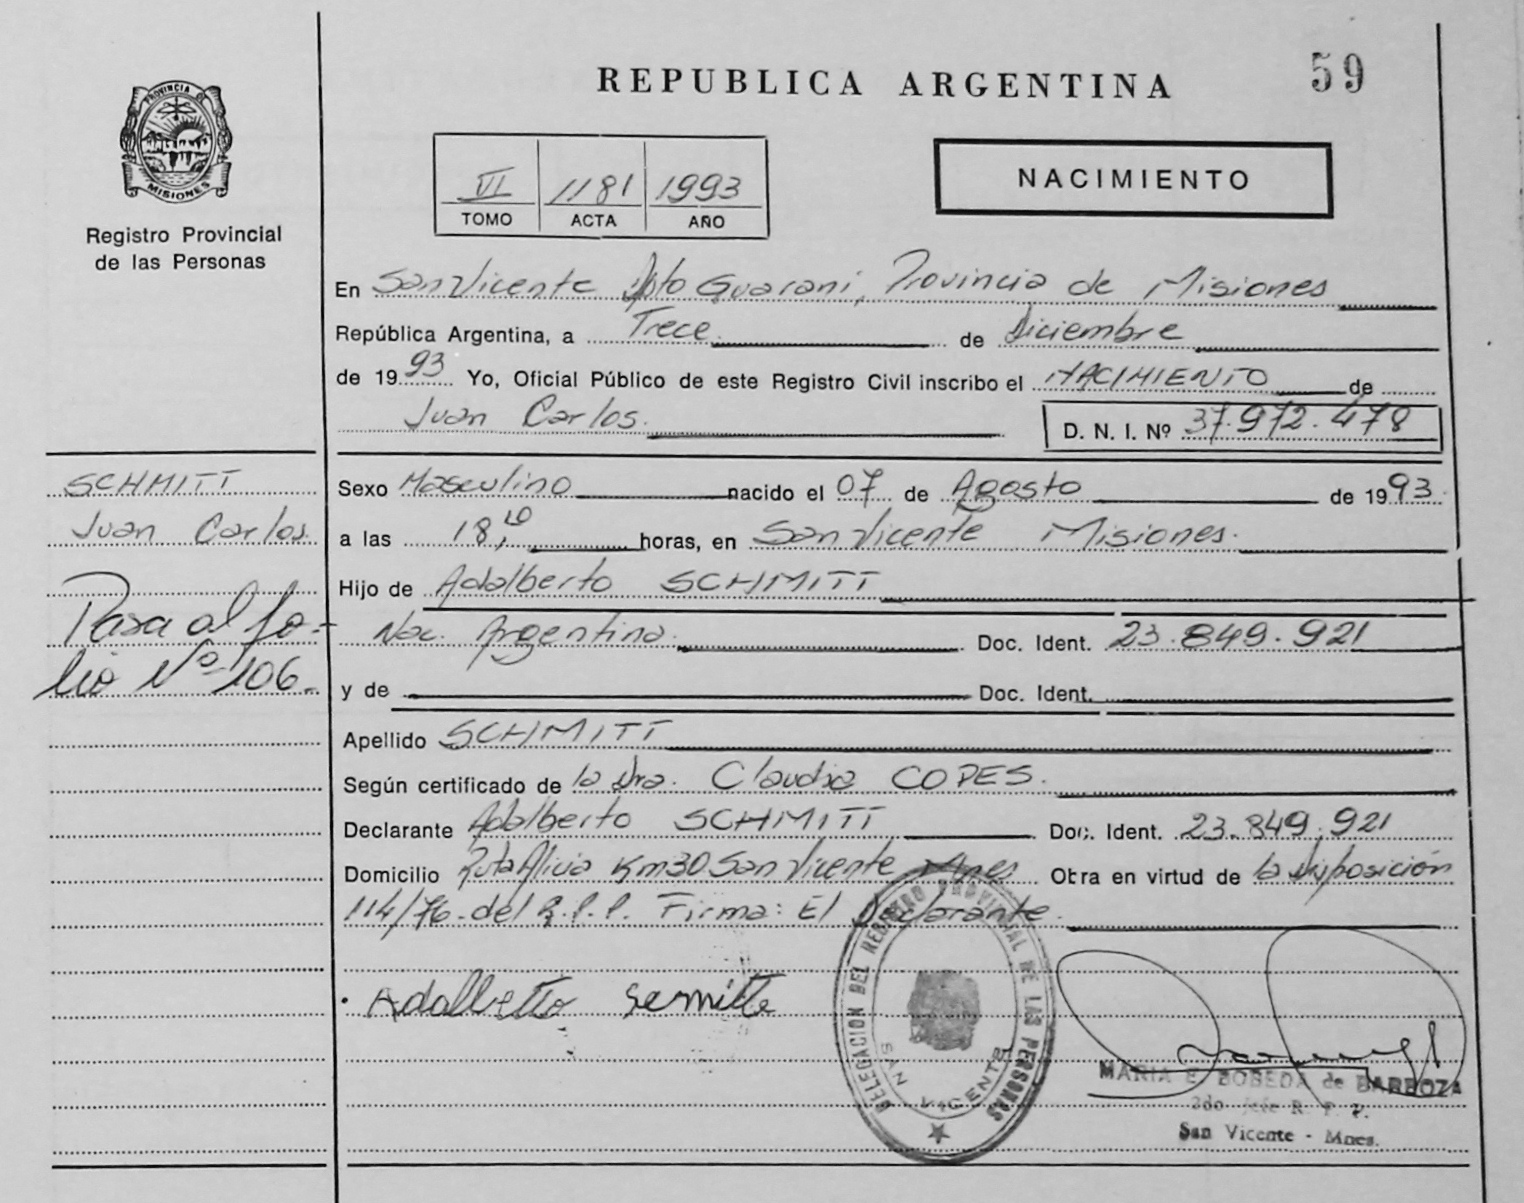 REPUBLICA ARGENTINA
59
PROVINCIA DE
MISIONES
Registro Provincial
de las Personas
VI 1181 1993
TOMO ACTA AÑO
NACIMIENTO
En San Vicente Dpto Guarani, Provincia de Misiones
República Argentina, a Trece de Diciembre
de 1993 Yo, Oficial Público de este Registro Civil inscribo el NACIMIENTO de
Juan Carlos. D. N. I. Nº 37.972.478
SCHMITT
Juan Carlos.
Pasa al fo-
lio Nº 106.
Sexo Masculino nacido el 07 de Agosto de 1993.
a las 18,10 horas, en San Vicente Misiones.
Hijo de Adalberto SCHMITT
Nac. Argentina. Doc. Ident. 23.849.921
y de Doc. Ident.
Apellido SCHMITT
Según certificado de la Dra. Claudia COPES.
Declarante Adalberto SCHMITT Doc. Ident. 23.849.921
Domicilio Ruta Alicia Km30 San Vicente Mnes Otra en virtud de la disposición
114/76.del R.P.P. Firma: El Declarante.
DELEGACION DEL REGISTRO PROVINCIAL DE LAS PERSONAS
SAN VICENTE
MARIA E. BOBEDA de BARBOZA
2do Jefe R. P. P.
San Vicente - Mnes.